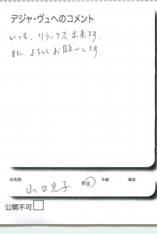 デジャ・ヴュへのコメント
いつも、リラックス出来ます。
また、よろしくお願いします。
お名前 山口
年齢 職業
公開不可